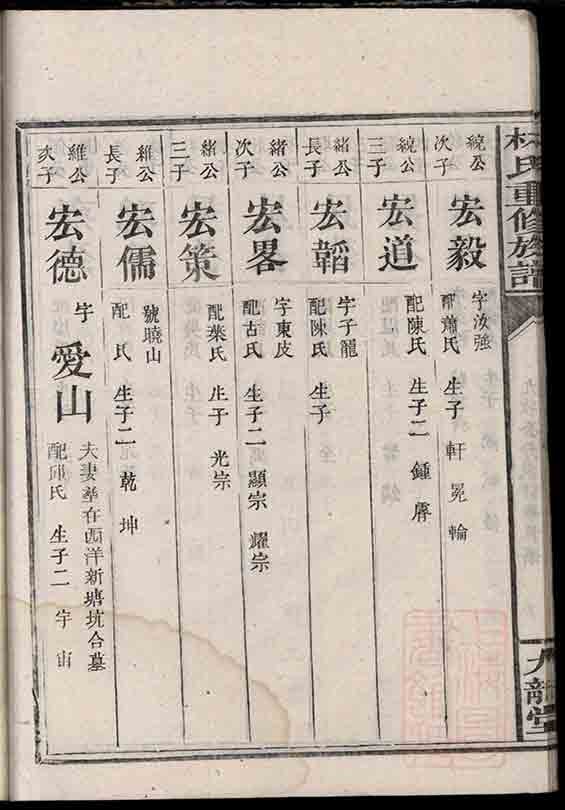 林氏重修族譜
九龍堂
統公次子
宏毅
字汝強
配蕭氏 生子 軒 冕 輪
統公三子
宏道
配陳氏 生子二 鍾
緒公長子
宏韜
字子龍
配陳氏 生子
緒公次子
宏畧
字東皮
配古氏 生子二 顯宗 耀宗
緒公三子
宏策
配葉氏 生子 光宗
維公長子
宏儒
號曉山
配 氏 生子二 乾 坤
維公次子
宏德
字 愛山
夫妻葬在西洋新塘坑合墓
配邱氏 生子二 宇 宙